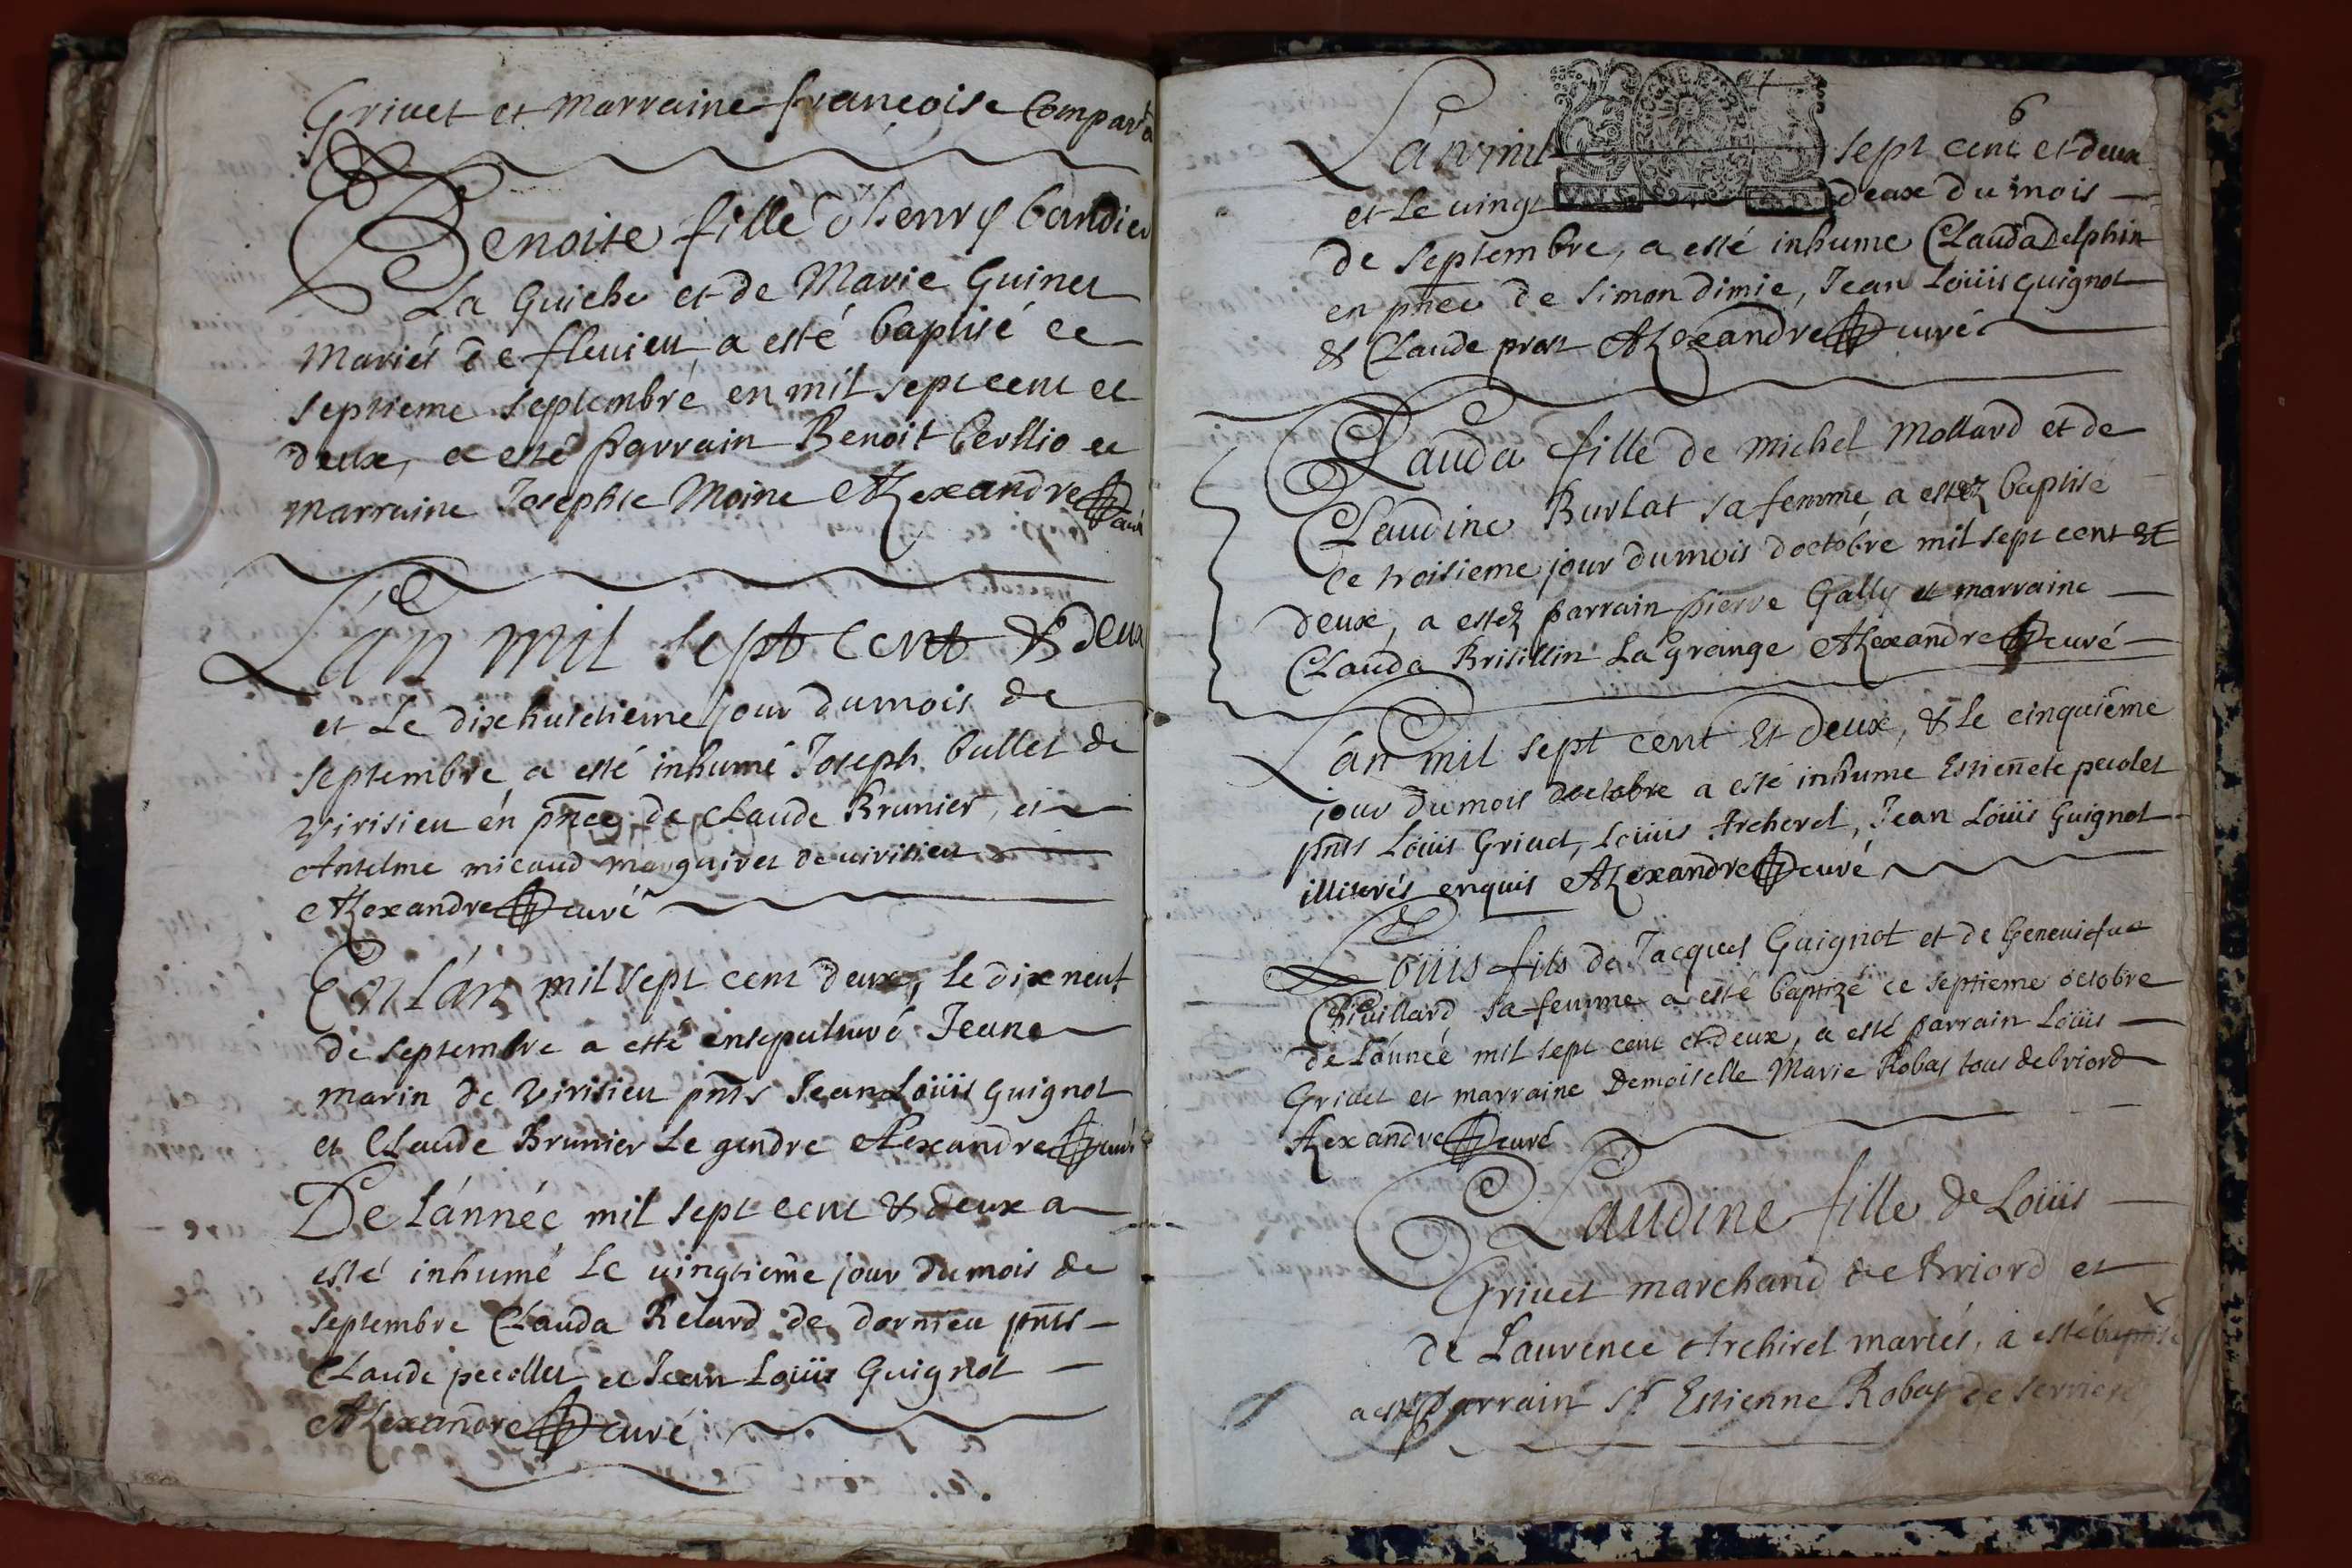 Grivet et marraine francoise Compara
Benoite fille d'henry bandier
La Guiche et de Marie Guinet
mariés de fleuieu a esté baptisé ce
septieme septembre en mil sept cent et
deux, a esté parrain Benoit berllio et
marraine Josephte Moine Alexandre curé
L'an mil sept cent & deux
et le dixhuictieme jour du mois de
septembre a esté inhumé Joseph bullet de
virisieu en pñce de Claude Brunier, et
Antelme micaud marguiret de uirisieu
Alexandre curé
En l'an mil sept cent deux, le dix neuf
de septembre a esté ensepulturé Jeane
marin de virisieu pñts Jean Loüis Guignot
et Claude Brunier le gendre Alexandre curé
De l'année mil sept cent & deux a
esté inhumé le uingtieme jour du mois de
septembre Clauda Relard de dornieu pñts
Claude pecollet et Jean Loüis Guignot
Alexandre curé
6
L'an mil sept cent et deux
et le uingt deux du mois
de septembre, a esté inhume Clauda Delphin
en pñce de Simon dimie, Jean Loüis Guignot
& Claude prost Alexandre curé
Clauda fille de Michel Mollard et de
Claudine Burlat sa femme, a estez baptisé
ce troisieme jour du mois d'octobre mil sept cent et
deux, a estez parrain pierre Gally et marraine
Clauda Brisillin La grange Alexandre curé
L'an mil sept cent et deux, & le cinquième
jour du mois doctobre a esté inhume Estienete pecolet
pñts Loüis Griuet, Loüis Archeret, Jean Loüis Guignot
illiterés enquis Alexandre curé
Loüis fils de Jacques Guignot et de Geneuiefue
Chiuillard sa femme a esté baptizé ce septieme octobre
de l'année mil sept cent et deux, a esté parrain Loüis
Griuet et marraine Demoiselle Marie Robas tous de briord
Alexandre curé
Claudine fille de Loüis
Griuet marchand de Briord et
de Laurence Archiret mariés, a esté baptisé
a esté parrain Sr Estienne Robas de serriere